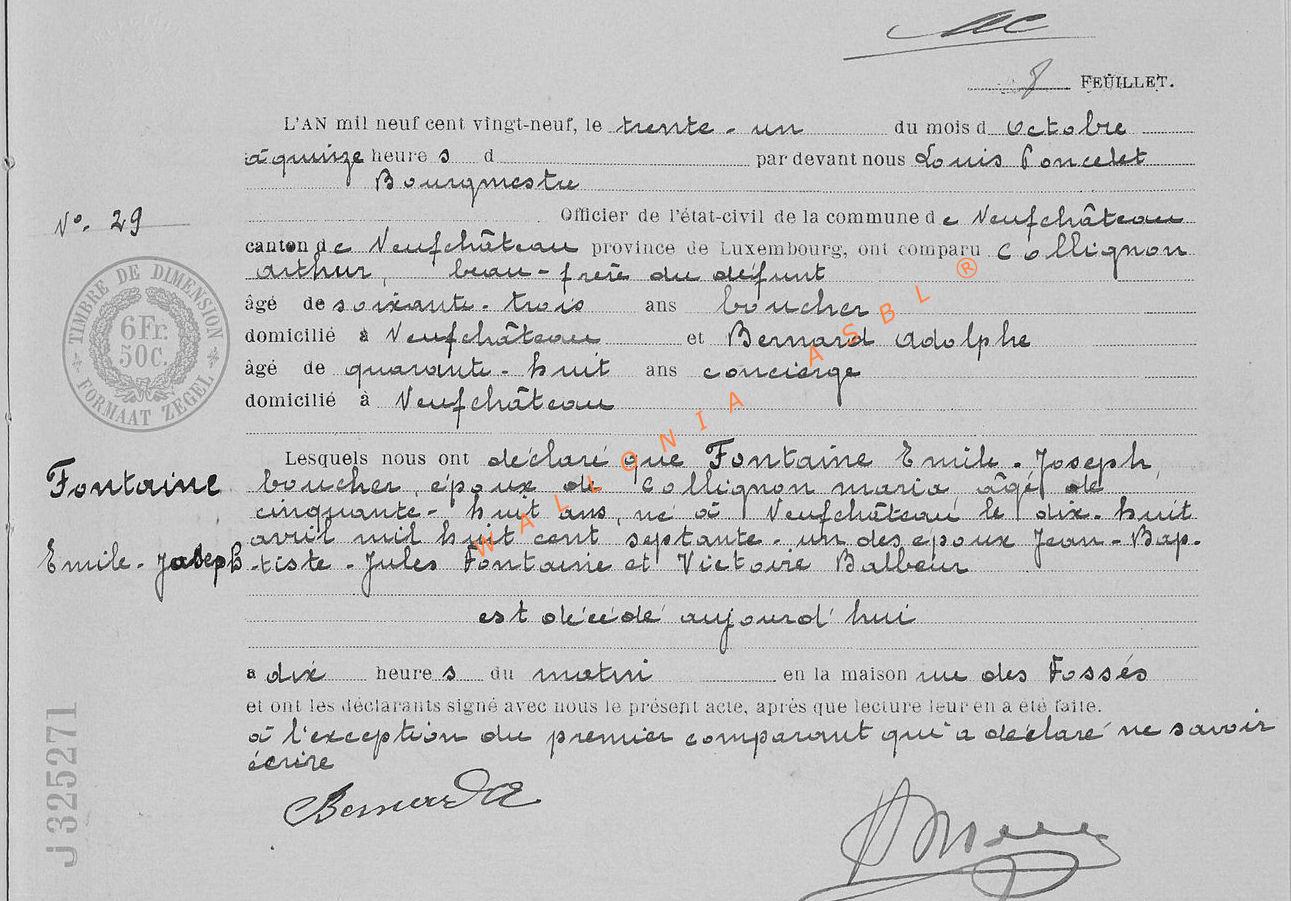 8 FEUILLET.
L'AN mil neuf cent vingt-neuf, le trente-un du mois d octobre
à quinze heure s d par devant nous Louis Poncelet
Bourgmestre
N°. 29
Officier de l'état-civil de la commune de Neufchâteau
canton de Neufchâteau province de Luxembourg, ont comparu Collignon
Arthur, beau-frère du défunt
âgé de soixante-trois ans boucher
domicilié à Neufchâteau et Bernard Adolphe
âgé de quarante-huit ans concierge
domicilié à Neufchâteau
TIMBRE DE DIMENSION
6 Fr.
50 C.
FORMAAT ZEGEL
Lesquels nous ont déclaré que Fontaine Emile-Joseph,
boucher, époux de Collignon Maria, âgé de
cinquante-huit ans, né à Neufchâteau le dix-huit
avril mil huit cent septante-un des époux Jean-Bap-
-tiste-Jules Fontaine et Victoire Balbeur
Fontaine
Emile-Joseph
est décédé aujourd'hui
à dix heure s du matin en la maison rue des Fossés
et ont les déclarants signé avec nous le présent acte, après que lecture leur en a été faite.
à l'exception du premier comparant qui a déclaré ne savoir
écrire
Bernard A
J 325271
WALLONIA ASBL ®